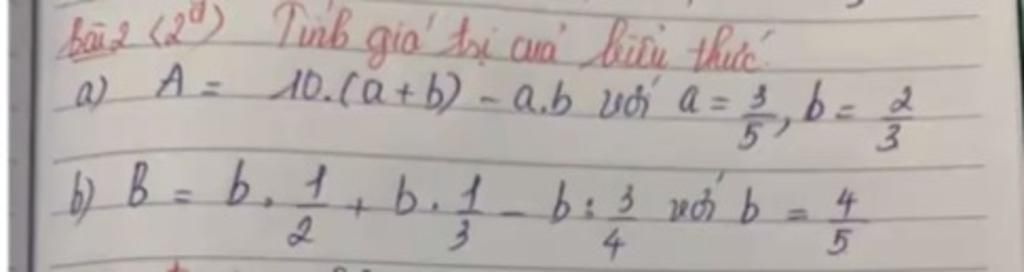 bài 2 (2đ) Tính giá trị của biểu thức.
a) A = 10.(a+b) - a.b với a = 3/5, b = 2/3
b) B = b . 1/2 + b . 1/3 - b : 3/4 với b = 4/5